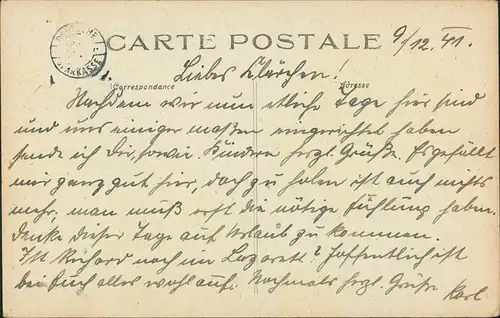 DEUTSCHE
SPARKASSE
CARTE POSTALE
9/12. 41.
Correspondance
Adresse
Liebes Klärchen!
Nachdem wir nun etliche Tage hier sind
und uns einiger maßen eingerichtet haben
sende ich Dir, sowie Kindern herzl. Grüße. Es gefällt
mir ganz gut hier, doch zu holen ist auch nichts
mehr, man muß erst die nötige Fühlung haben,
denke dieser Tage auf Urlaub zu kommen.
Ist Richard noch im Lazarett? Hoffentlich ist
bei Euch alles wohlauf. Nochmals herzl. Grüße
Karl